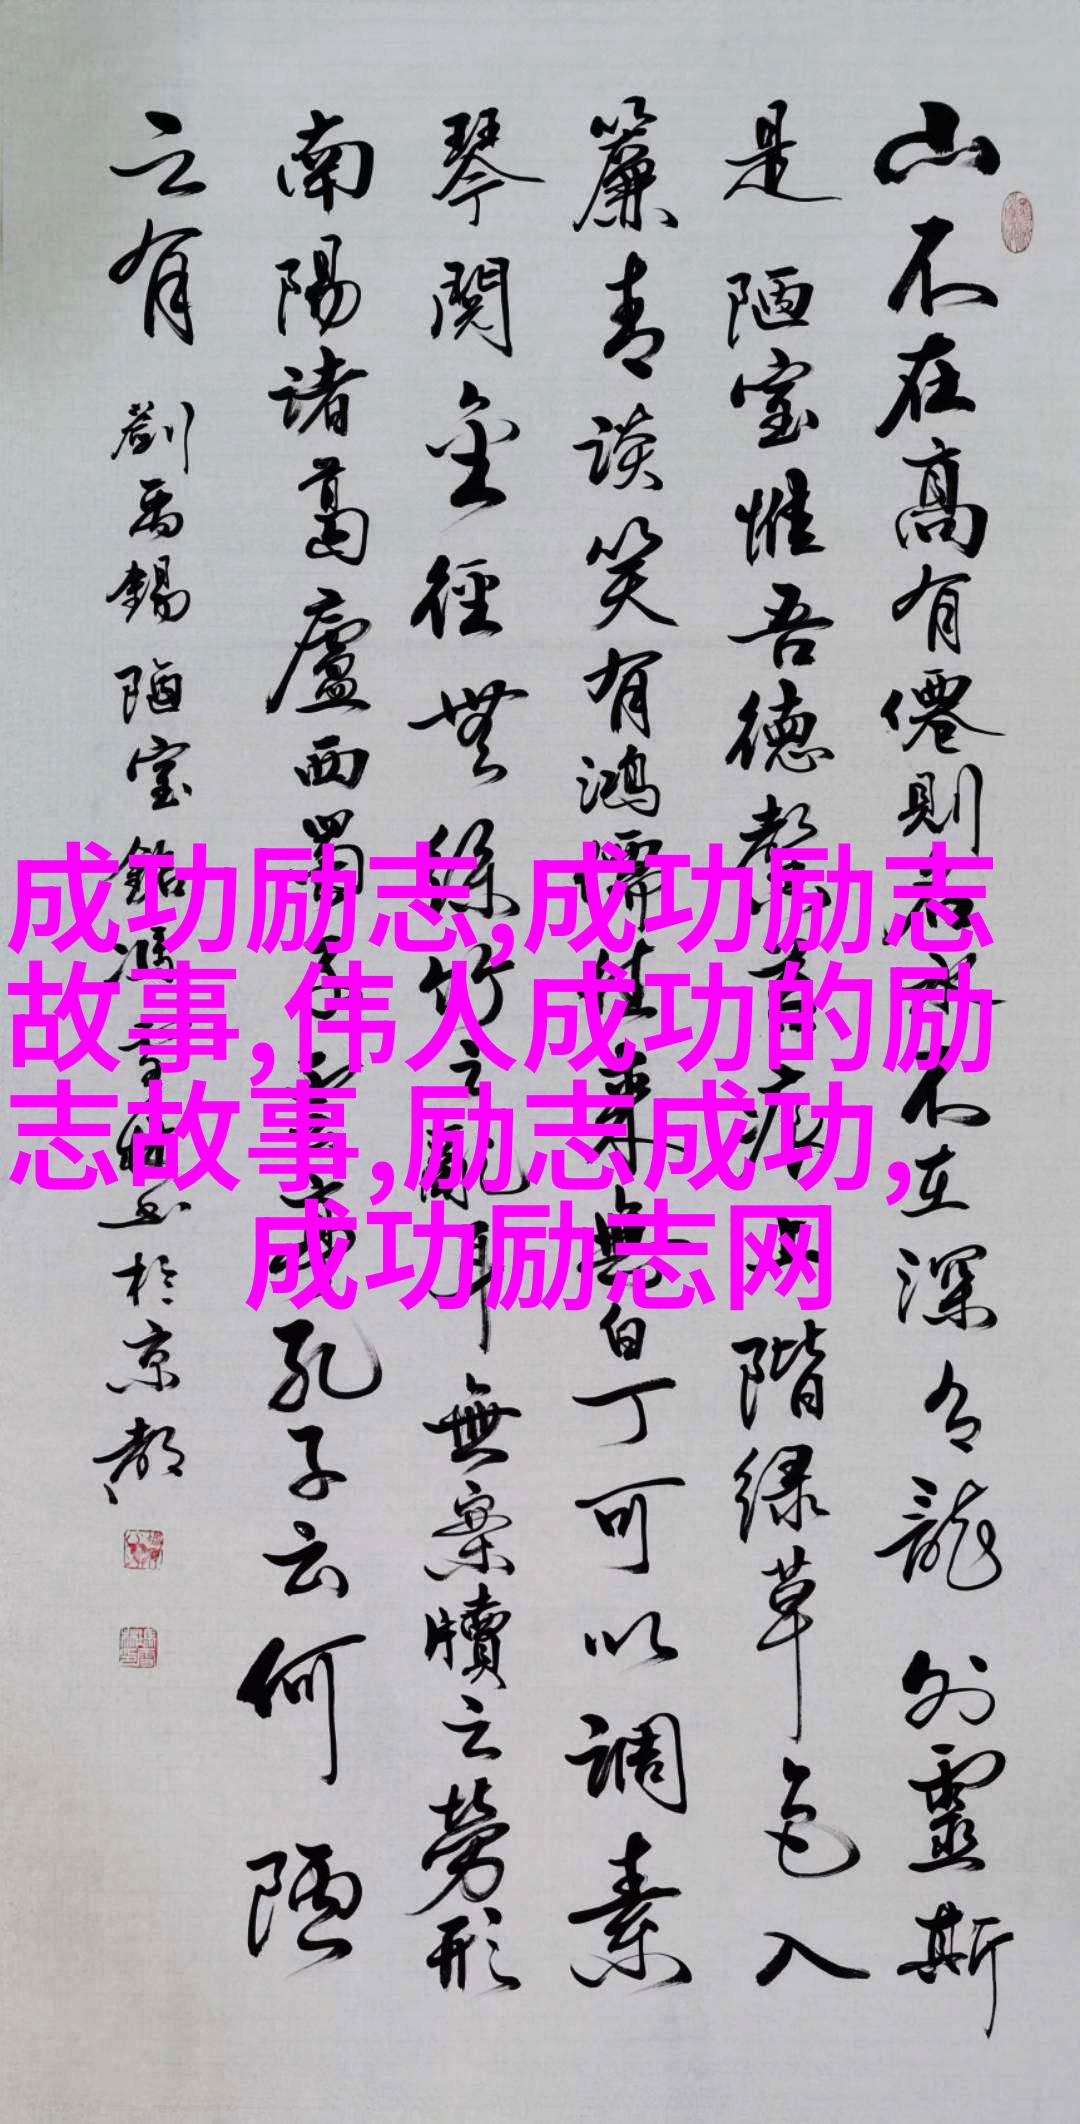 山不在高有僊則名水不在深有龍則靈斯
是陋室惟吾德馨苔痕上階緑草色入
簾青談笑有鴻儒往来無白丁可以調素
琴閱金徑無絲竹之亂耳無案牘之勞形
南陽諸葛廬西蜀子雲亭孔子云何陋
之有 劉禹錫陋室銘馮书於京都
成功励志,成功励志
故事,伟人成功的励
志故事,励志成功,
成功励志网